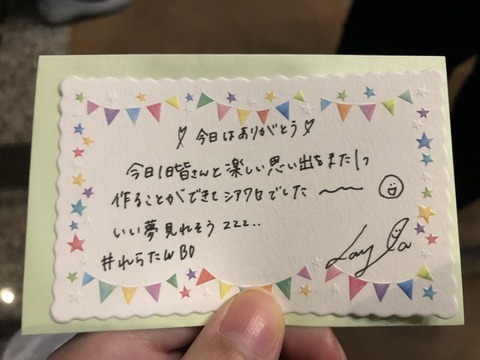 ♡今日はありがとう♡
今日1日皆さんと楽しい思い出をまた1つ
作ることができてシアワセでした〜〜
いい夢見れそうzzz..
#れらたんBD